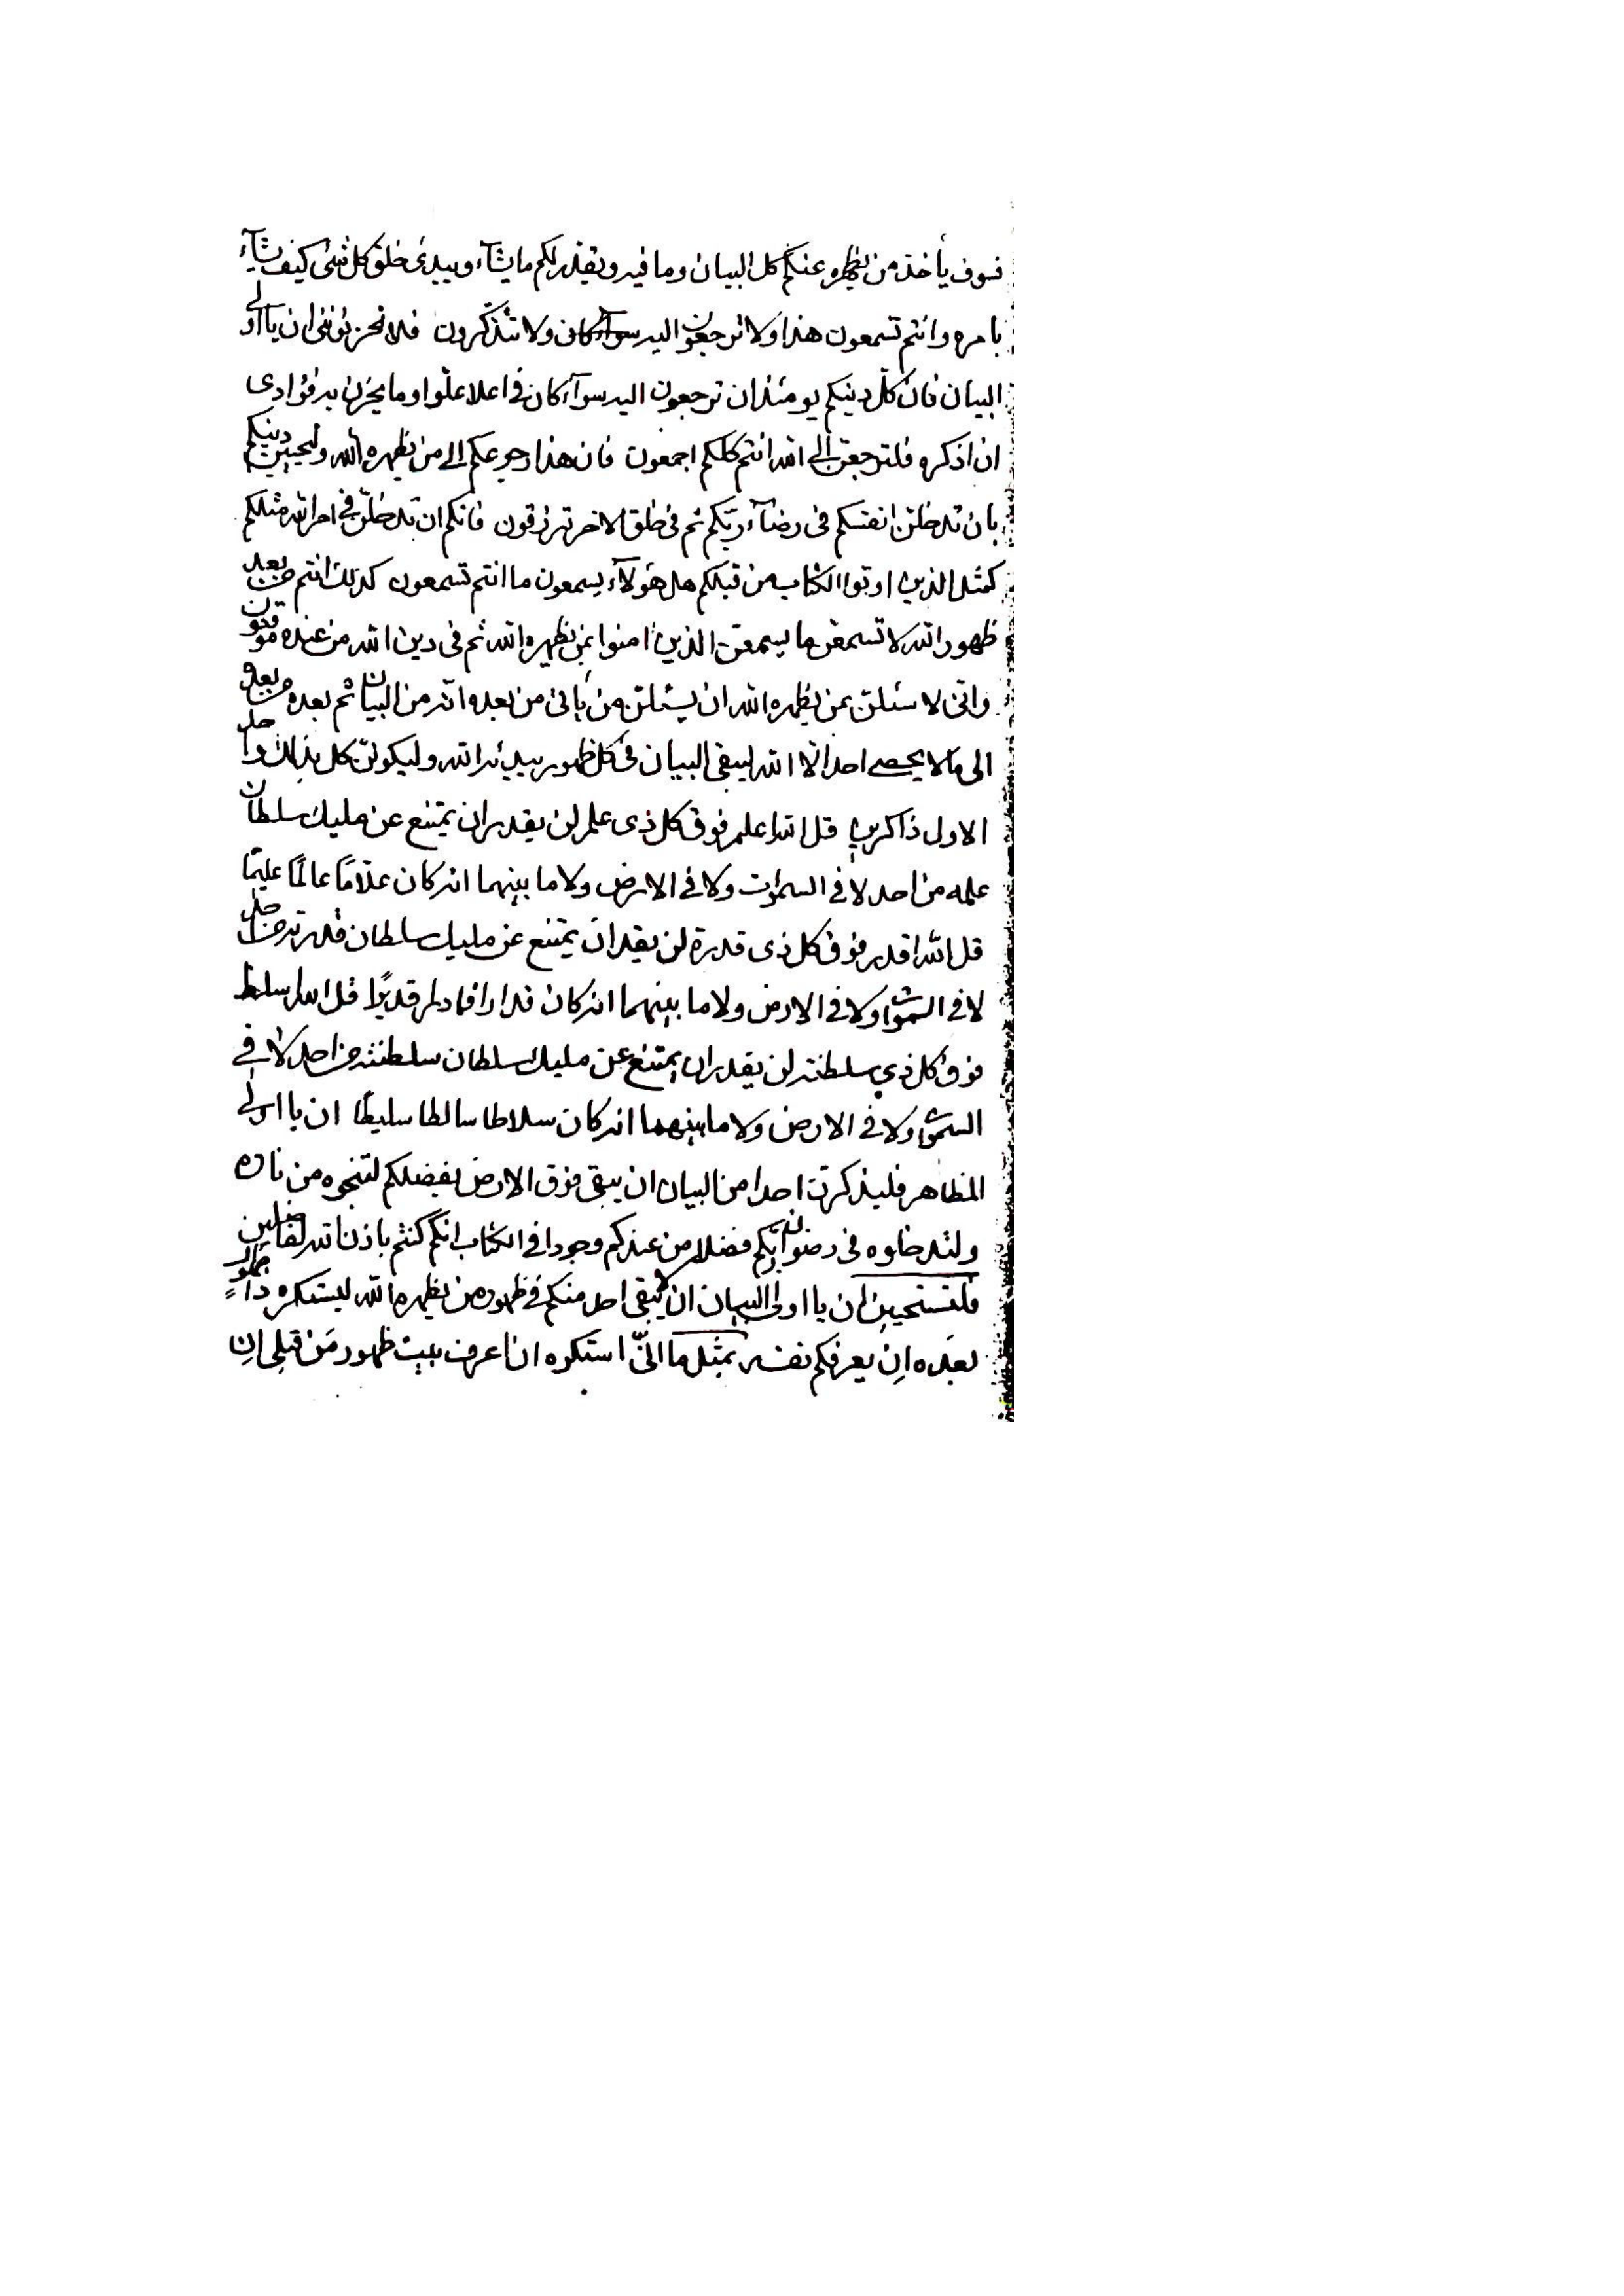 فسوف يأخذ من يظهره عنكم كل البيان وما فيه ويقدر لكم ما يشآء ويبدئ خلق كل شئ كيف يشآء
بامره وانتم تسمعون هذا ولا ترجعون اليه ولا تتذكرون فلا تحزنونني ان يا اولي
البيان فان كل دينكم يومئذ ان ترجعون اليه سوآء كان في اعلا علوا وما يحزن به فؤادي
ان اذكره فلترجعن الى الله انتم كلكم اجمعون فان هذا رجوعكم الى من يظهره الله ولتحيين دينكم
بان تدخلن انفسكم في رضآء ربكم ثم في خلق الاخر ترزقون فانكم ان تدخلن في امر الله مثلكم
كمثل الذين اوتوا الكتاب من قبلكم هل هؤلآء يسمعون ما انتم تسمعون كذلك انتم من بعد
ظهور الله لا تسمعن ما يسمعن الذين امنوا بمن يظهره الله ثم في دين الله من عنده موقنون
وانني لاسئلن عمن يظهره الله ان يسئلن من يأتي من بعده انه من البيان ثم بعده من بعده
الى ما لا يحصي احد الا الله ليبقى البيان في كل ظهور يبدئه الله وليكونن كل بذلك واحد
الاول ذاكرين قل الله اعلم فوق كل ذي علم لن يقدر ان يمتنع عن مليك سلطان
علمه من احد لا في السموات ولا في الارض ولا ما بينهما انه كان علاما عالما عليما
قل الله اقدر فوق كل ذي قدرة لن يقدر ان يمتنع عن مليك سلطان قدرته من احد
لا في السموات ولا في الارض ولا ما بينهما انه كان قدارا قادرا قديرا قل الله اسلط
فوق كل ذي سلطنة لن يقدر ان يمتنع عن مليك سلطان سلطنته من احد لا في
السموات ولا في الارض ولا ما بينهما انه كان سلاطا سالطا سليطا ان يا اولي
المظاهر فليذكرن احدا من البيان ان يبقى فوق الارض بفضلكم لتنجوه من ناره
ولتدخلوه في رضوان ربكم فضلا من عندكم وجودا في الكتاب انكم كنتم باذن الله لفاضلين
فلتستحيين ان يا اولي البيان ان لا يبقى احد منكم في ظهور من يظهره الله ليستكره
بعده ان يعرفكم نفسه بمثل ما انني استكره ان اعرف بيت ظهور من قبلي ان